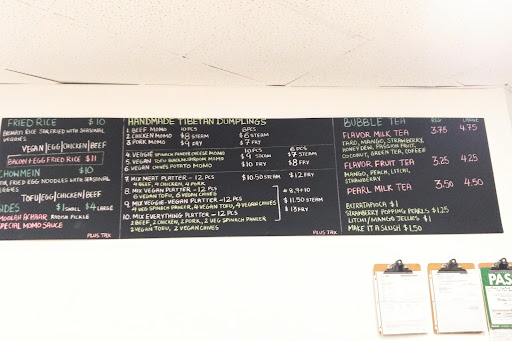 FRIED RICE $10
BASMATI RICE STIR FRIED WITH SEASONAL
VEGGIES
VEGAN|EGG|CHICKEN|BEEF
BACON & EGG FRIED RICE $11
CHOWMEIN $10
STIR FRIED EGG NOODLES WITH SEASONAL
TOFU|EGG|CHICKEN|BEEF
SIDES $1 SMALL $4 LARGE
ACHAAR PICKLE
SPECIAL MOMO SAUCE
HANDMADE TIBETAN DUMPLINGS
10PCS 6PCS
1. BEEF MOMO
2. CHICKEN MOMO $8 STEAM $6 STEAM
3. PORK MOMO $9 FRY $7 FRY
10 PCS 6 PCS
4. VEGGIE SPINACH PANEER CHEESE MOMO
5. VEGAN TOFU MUSHROOM MOMO $9 STEAM $7 STEAM
6. VEGAN CHIVES POTATO MOMO $10 FRY $8 FRY
7. MIX MEAT PLATTER - 12 PCS $10.50 STEAM $12 FRY
4 BEEF, 4 CHICKEN, 4 PORK
8. MIX VEGAN PLATTER - 12 PCS
6 VEGAN TOFU, 6 VEGAN CHIVES
9. MIX VEGGIE-VEGAN PLATTER - 12 PCS # 8,9+10
4 VEG SPINACH PANEER, 4 VEGAN TOFU, 4 VEGAN CHIVES $11.50 STEAM
10. MIX EVERYTHING PLATTER - 12 PCS $13 FRY
2 BEEF, 2 CHICKEN, 2 PORK, 2 VEG SPINACH PANEER
2 VEGAN TOFU, 2 VEGAN CHIVES
PLUS TAX
BUBBLE TEA REG LARGE
FLAVOR MILK TEA 3.75 4.75
TARO, MANGO, STRAWBERRY,
HONEYDEW, PASSION FRUIT,
COCONUT, GREEN TEA, COFFEE
FLAVOR FRUIT TEA 3.25 4.25
MANGO, PEACH, LITCHI,
STRAWBERRY
PEARL MILK TEA 3.50 4.50
EXTRA TAPIOCA $1
STRAWBERRY POPPING PEARLS $1.25
LITCHI/MANGO JELLIES $1
MAKE IT A SLUSH $1.50
PLUS TAX
PAS